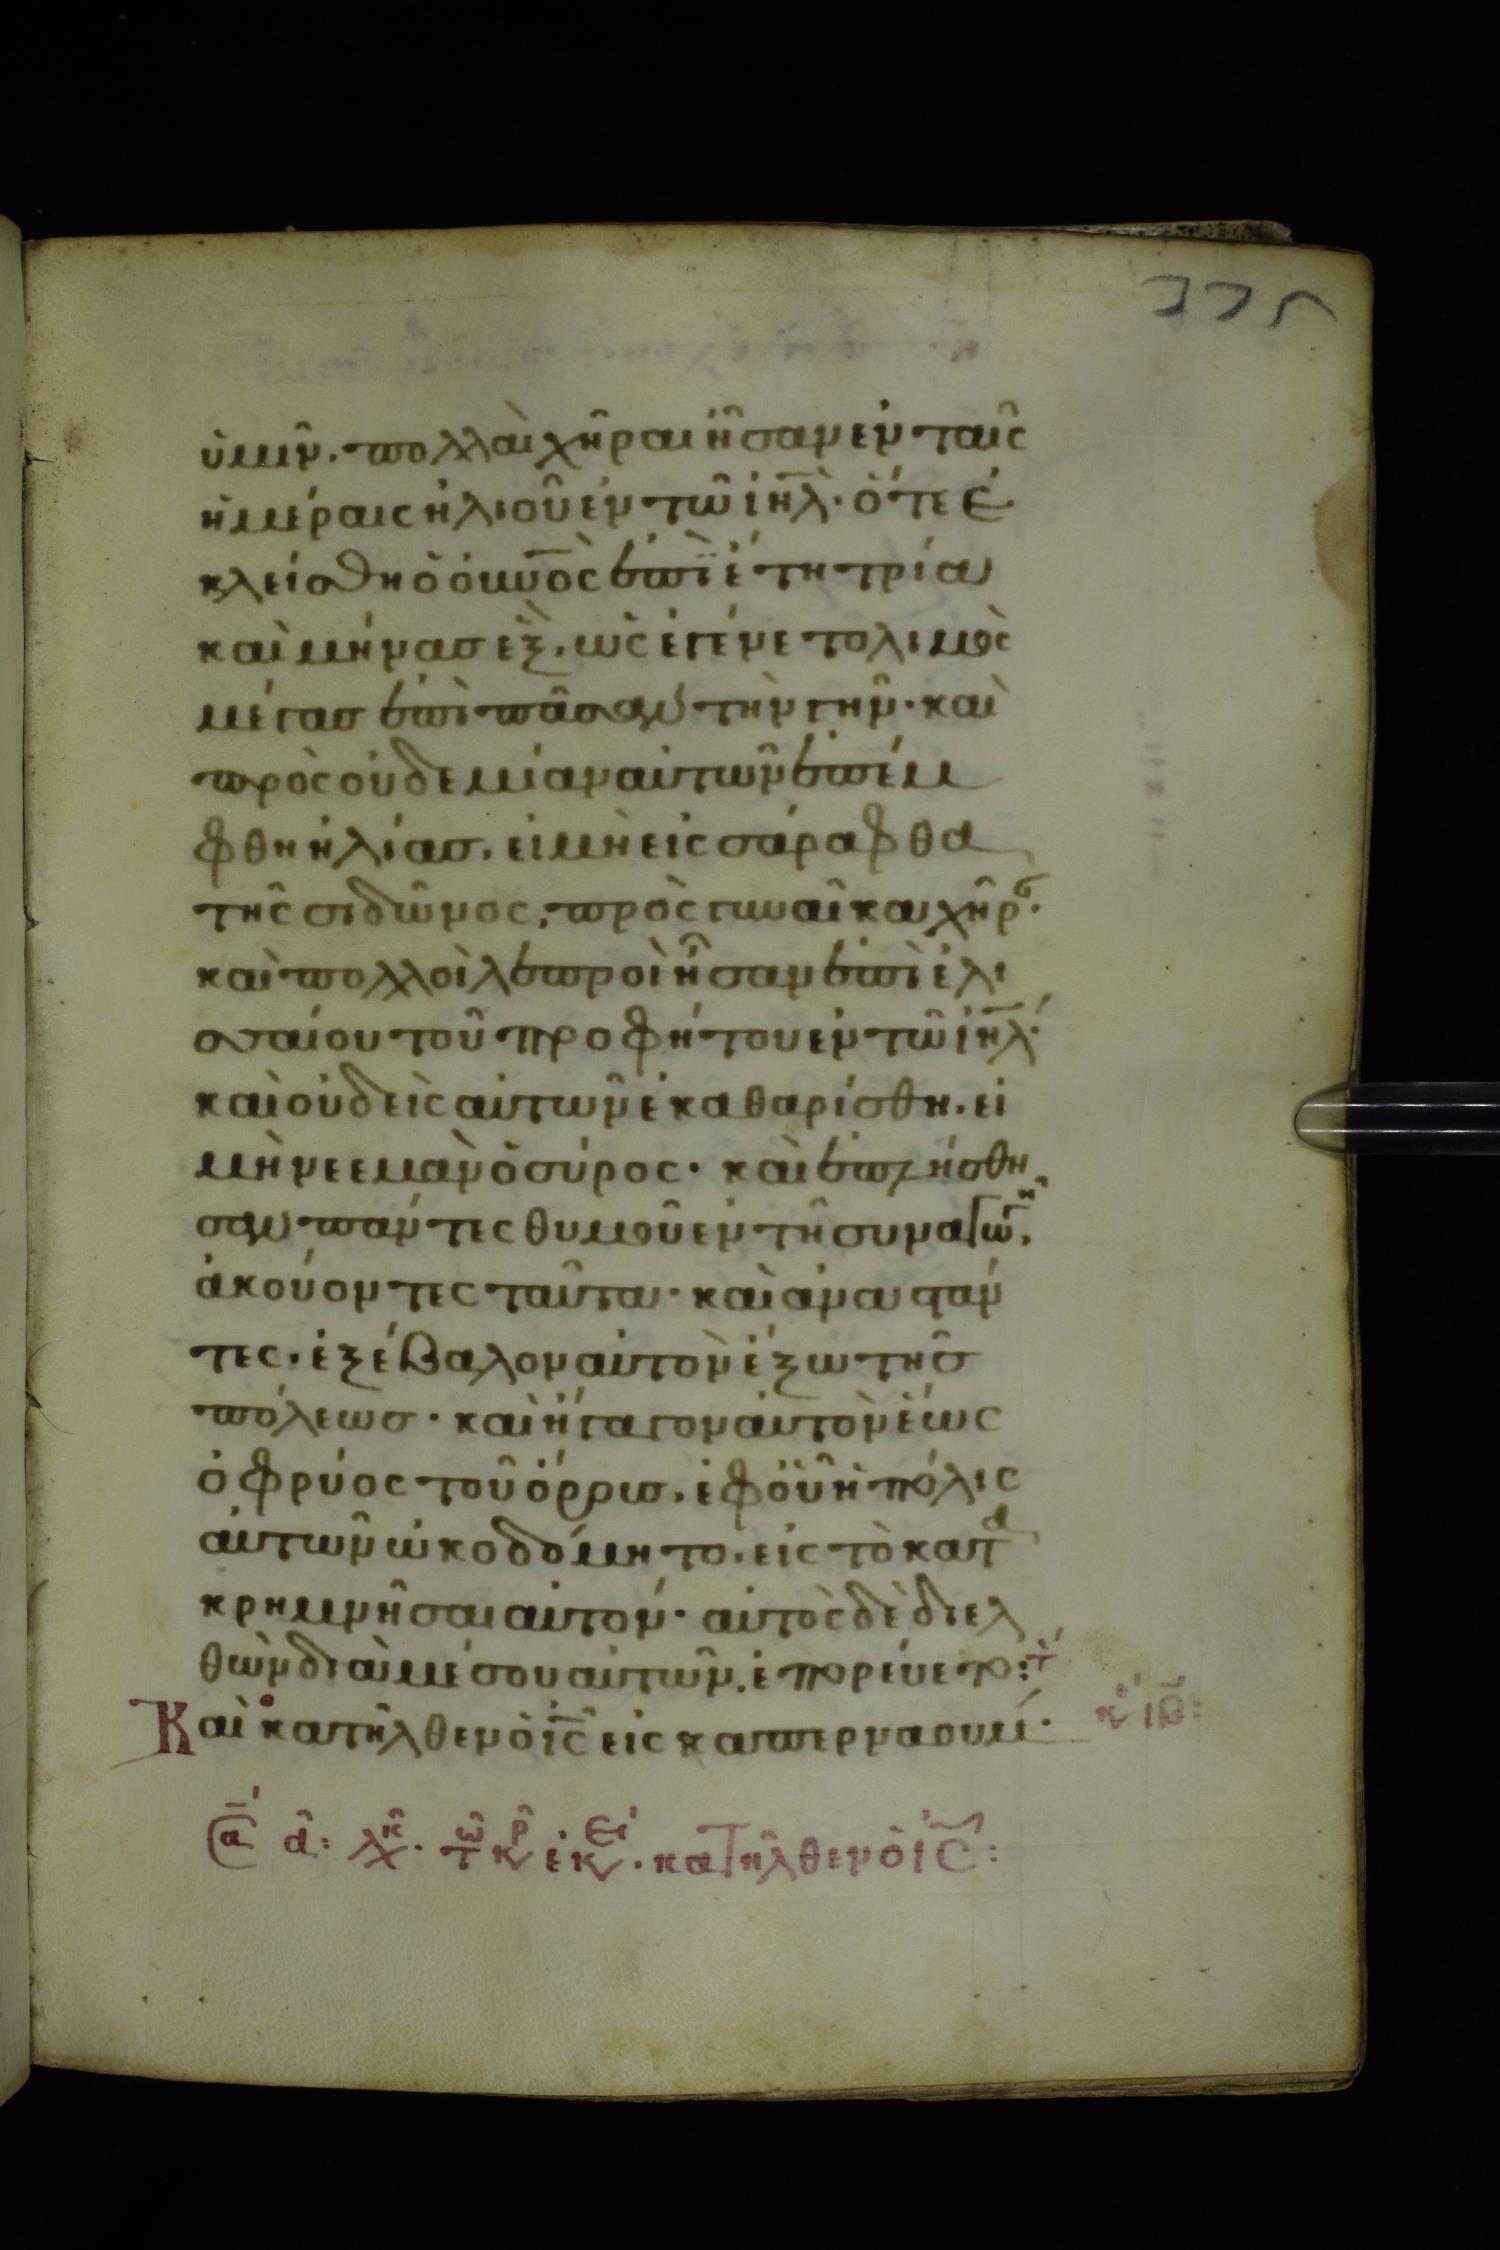 ὑμῖν. πολλαὶ χῆραι ἦσαν ἐν ταῖς
ἡμέραις ἡλιοῦ ἐν τῶ ἰηλ̀. ὅτε ἐ
κλείσθη ὁ οὐνὸς ἐπῒ ἔτη τρία
καὶ μήνας ἓξ. ὡς ἐγένετο λιμὸς
μέγας ἐπὶ πᾶσαν τὴν γῆν. καὶ
πρὸς οὐδεμίαν αὐτῶν ἐπέμ
φθη ἡλίας. εἰ μὴ εἰς σάραφθα
τῆς σιδῶνος, πρὸς γυναῖκα χῆρ.
καὶ πολλοὶ λεπροὶ ἦσαν ἐπὶ ἐλι
σσαίου τοῦ προφήτου ἐν τῶ ἰηλ.
καὶ οὐδεὶς αὐτῶν ἐκαθαρίσθη. εἰ
μὴ νεεμὰν ὁ σύρος. καὶ ἐπλήσθη
σαν πάντες θυμοῦ ἐν τῆ συναγωγῆ,
ἀκούοντες ταῦτα. καὶ ἀναστάν
τες. ἐξέβαλον αὐτὸν ἔξω τῆς
πόλεως. καὶ ἤγαγον αὐτὸν ἕως
ὀφρύος τοῦ ὄρους. ἐφ οὗ ἡ πόλις
αὐτῶν ὠκοδόμητο. εἰς τὸ κατα
κρημνῆσαι αὐτόν. αὐτὸς δὲ διελ
θὼν διὰ μέσου αὐτῶν. ἐπορεύετο:
Καὶ κατῆλθεν ὁ ἰς εἰς καπερναούμ.
κυ ιβ:
κατῆλθεν ὁ ἰς: